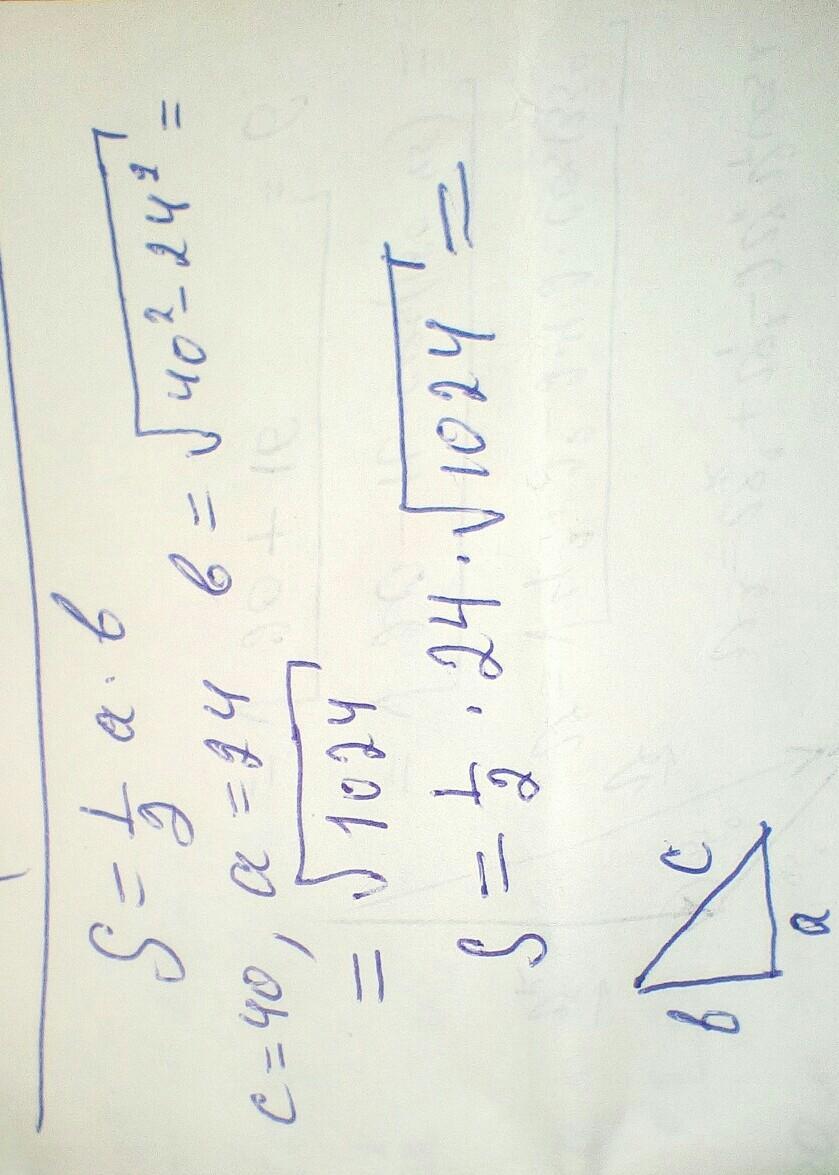 S = 1/2 a · b
c = 40, a = 24 b = √(40² - 24²) =
= √1024
S = 1/2 · 24 · √1024 =
b c
a